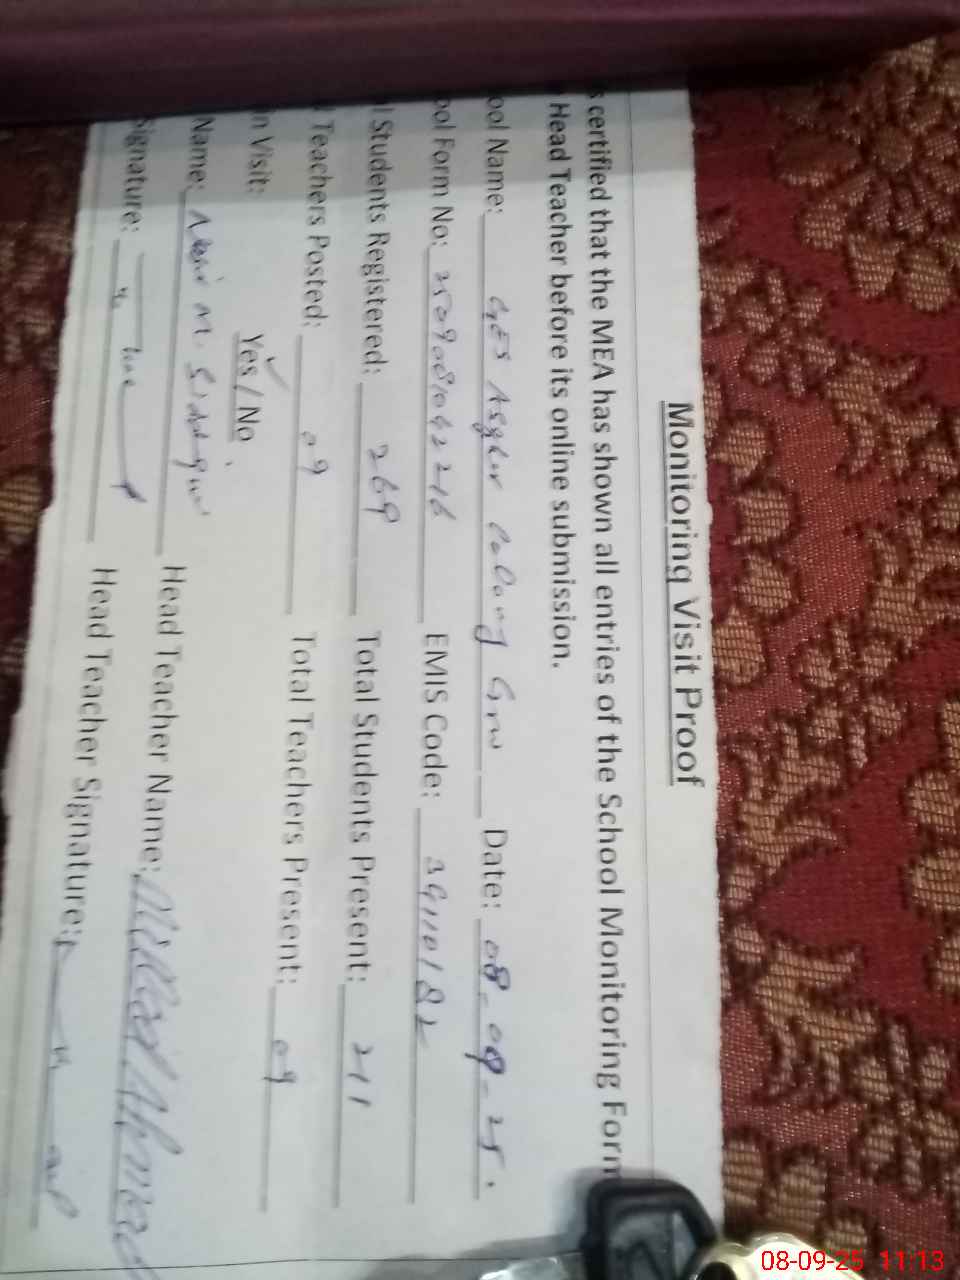 Monitoring Visit Proof
s certified that the MEA has shown all entries of the School Monitoring Form
Head Teacher before its online submission.
ool Name: GES Asghar Colony Grw Date: 08-09-25.
ool Form No: EMIS Code:
l Students Registered: 269 Total Students Present: 211
Teachers Posted: 09 Total Teachers Present: 09
n Visit: Yes / No
Name: Head Teacher Name:
Signature: Head Teacher Signature:
08-09-25 11:13